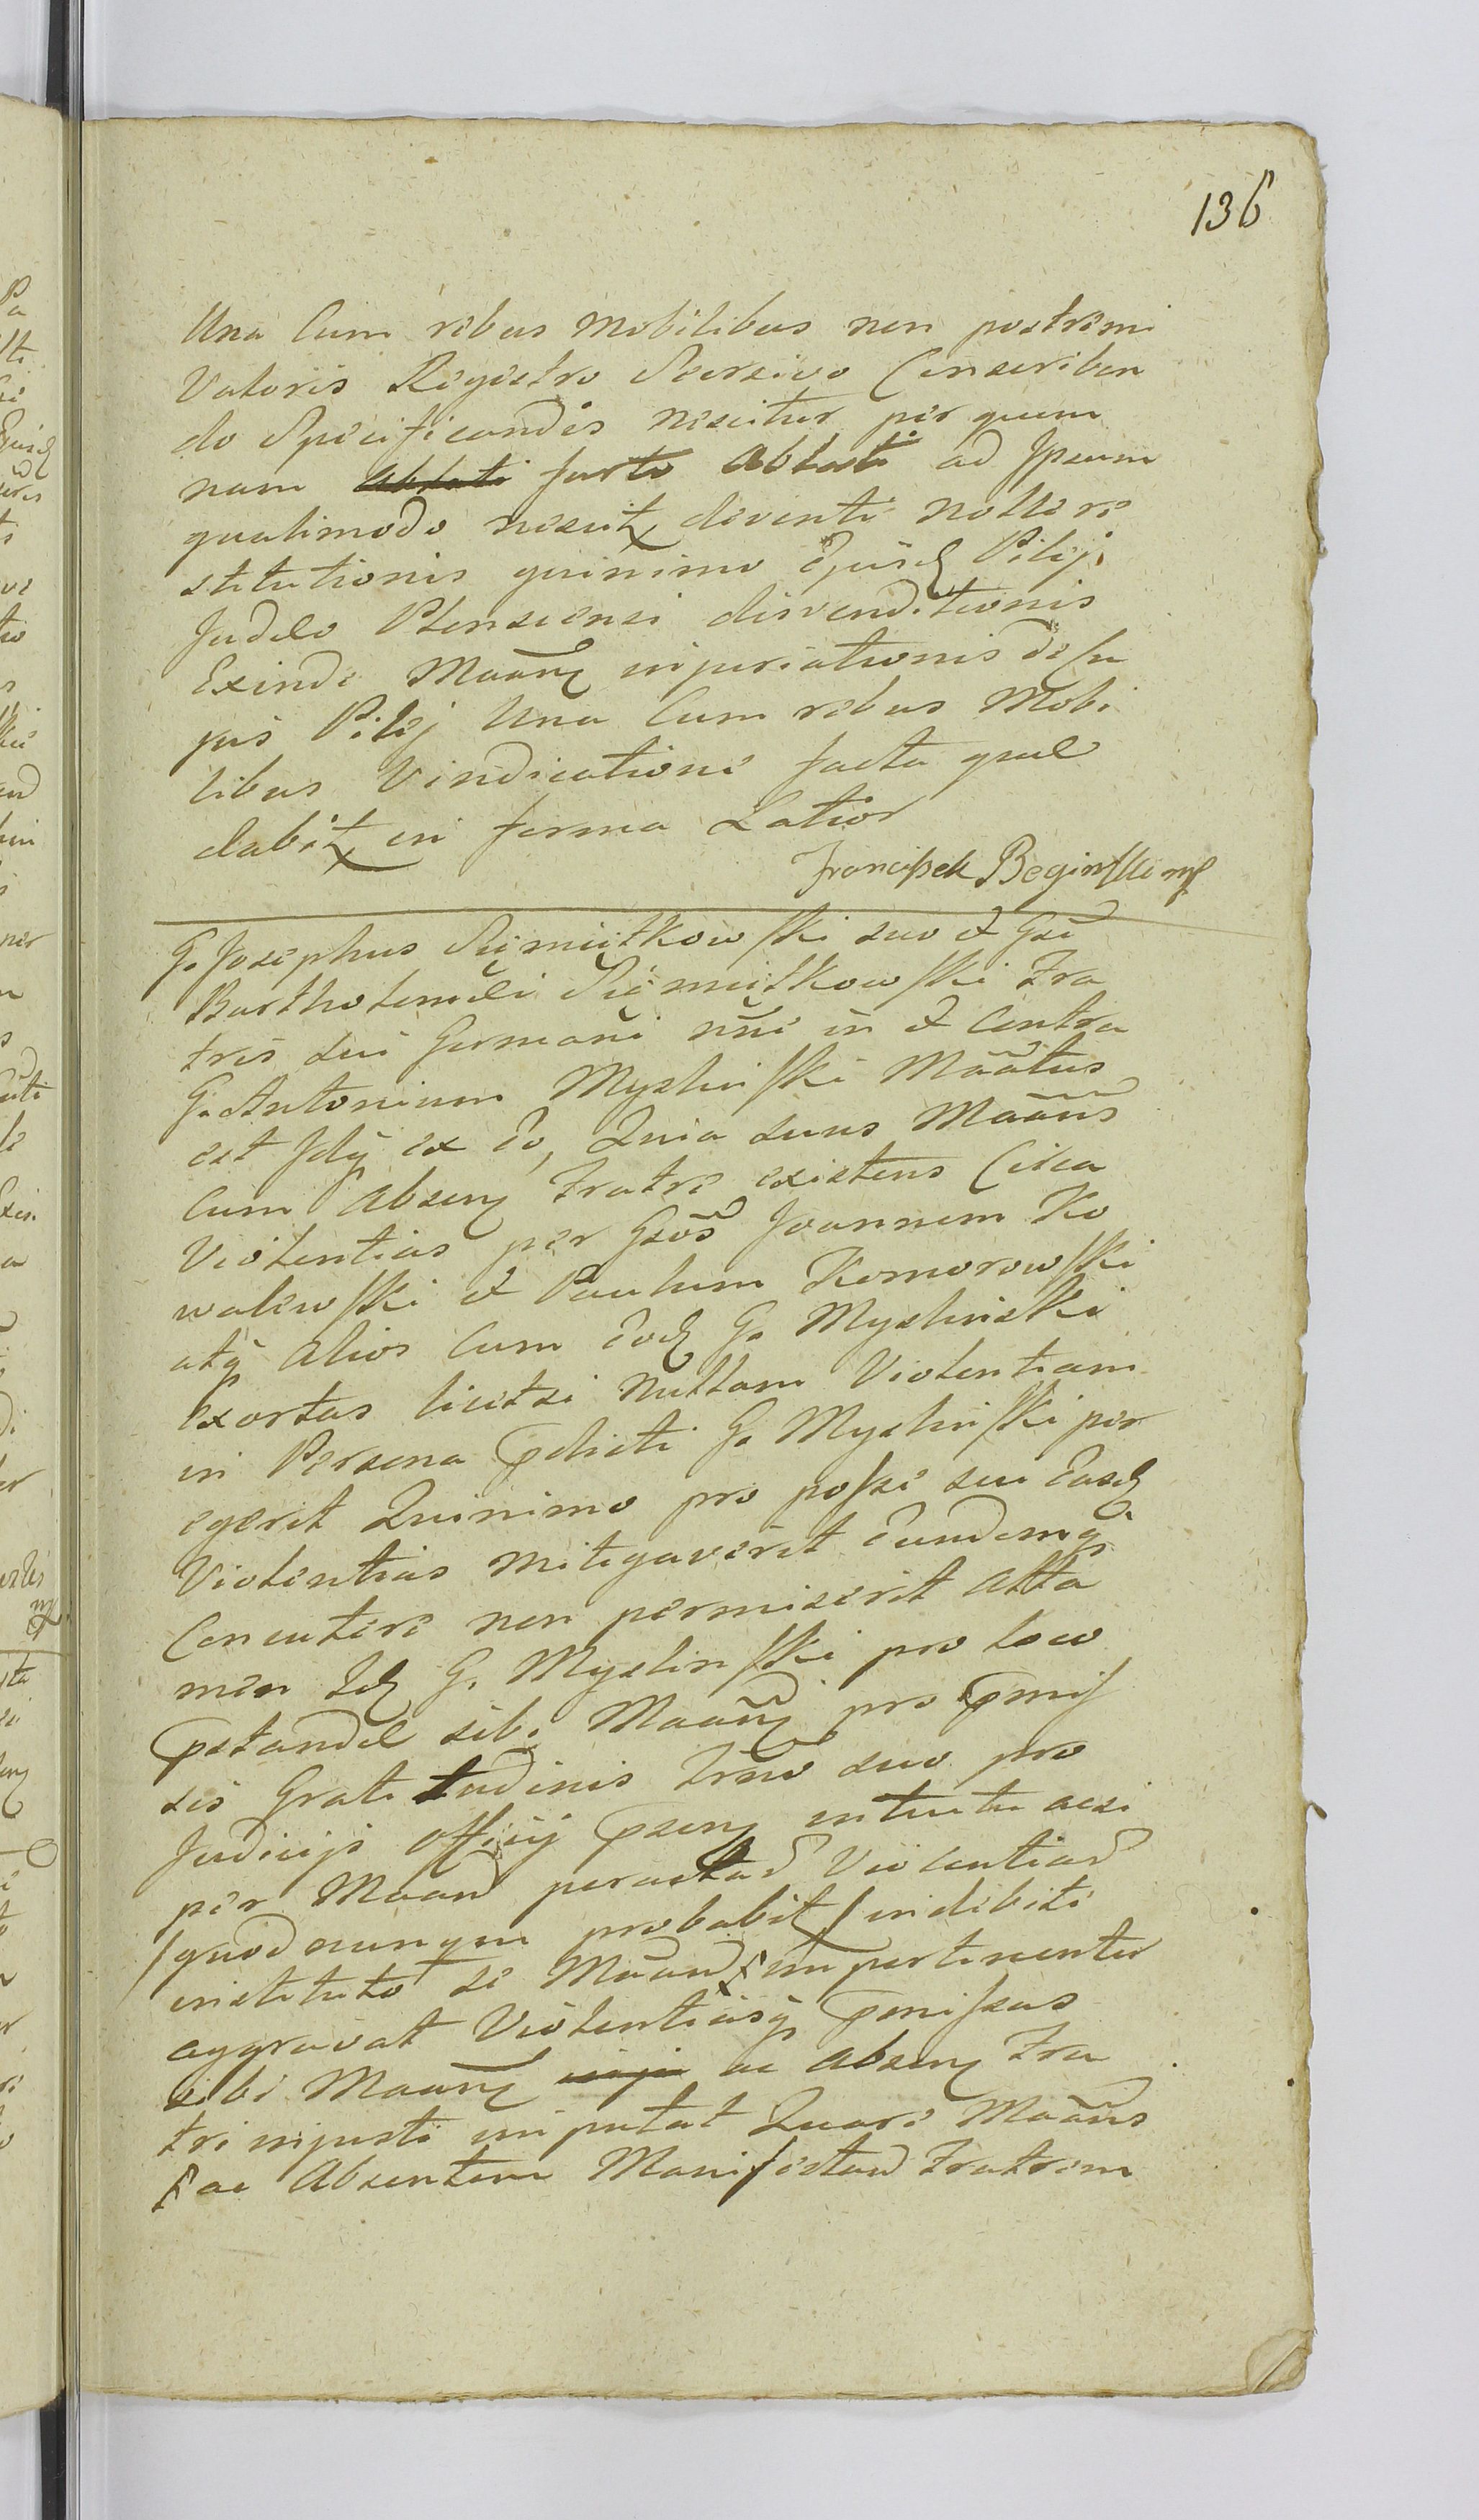 136
Una Cum rebus Mobilibus non postremi
Valoris Regestro Seorsivo Conscriben
do Specificandis nescitur per quem
nam ablati furto Ablati ad Ipsum
qualimodo nescit deventi nolle re
stitutionis quinimo Ejusd Pilej
Judeo Plonscensi divenditionis
Exinde Maanq injuriationis de hu
jus Pilej Una Cum rebus Mobi
libus Vindicatione facta quae
dabit in forma Latior
Franciszek Beginski mp
G. Josephus Siemiątkowski suo et Gsi
Bartholomei Siemiątkowski Fra
tris sui Germani nne in et Contra
G. Antonium Myslinski Maatus
est Idq ex Eo, Quia suus Maans
Cum absenq Fratre existens Circa
Violentias per Gsos Joannem Ko
walewski et Paulum Komorowski
atq Alios Cum Eod G. Myslinski
exortas licet si Nullam Violentiam
in Persona pdicti G. Myslinski per
egerit Quinimo pro posse suo Easd
Violentias Mitigaverit Eundemq
Concutere non permiserit Atta
men Id G. Myslinski pro loco
pstandae sibi Maanq pro pmis
sis Gratitudinis Frno suo pro
Judicijs Officij psenq intentu acsi
per Maand peractad Violentiad
/quod nunqm probabit/ indebite
instituto se Maand impertinenter
aggravat Violentiasq pmissas
sibi Maanq inju ac absenq Fra
tri injuste imputat Quare Maans
se ac Absentem Manifestand Fratrem